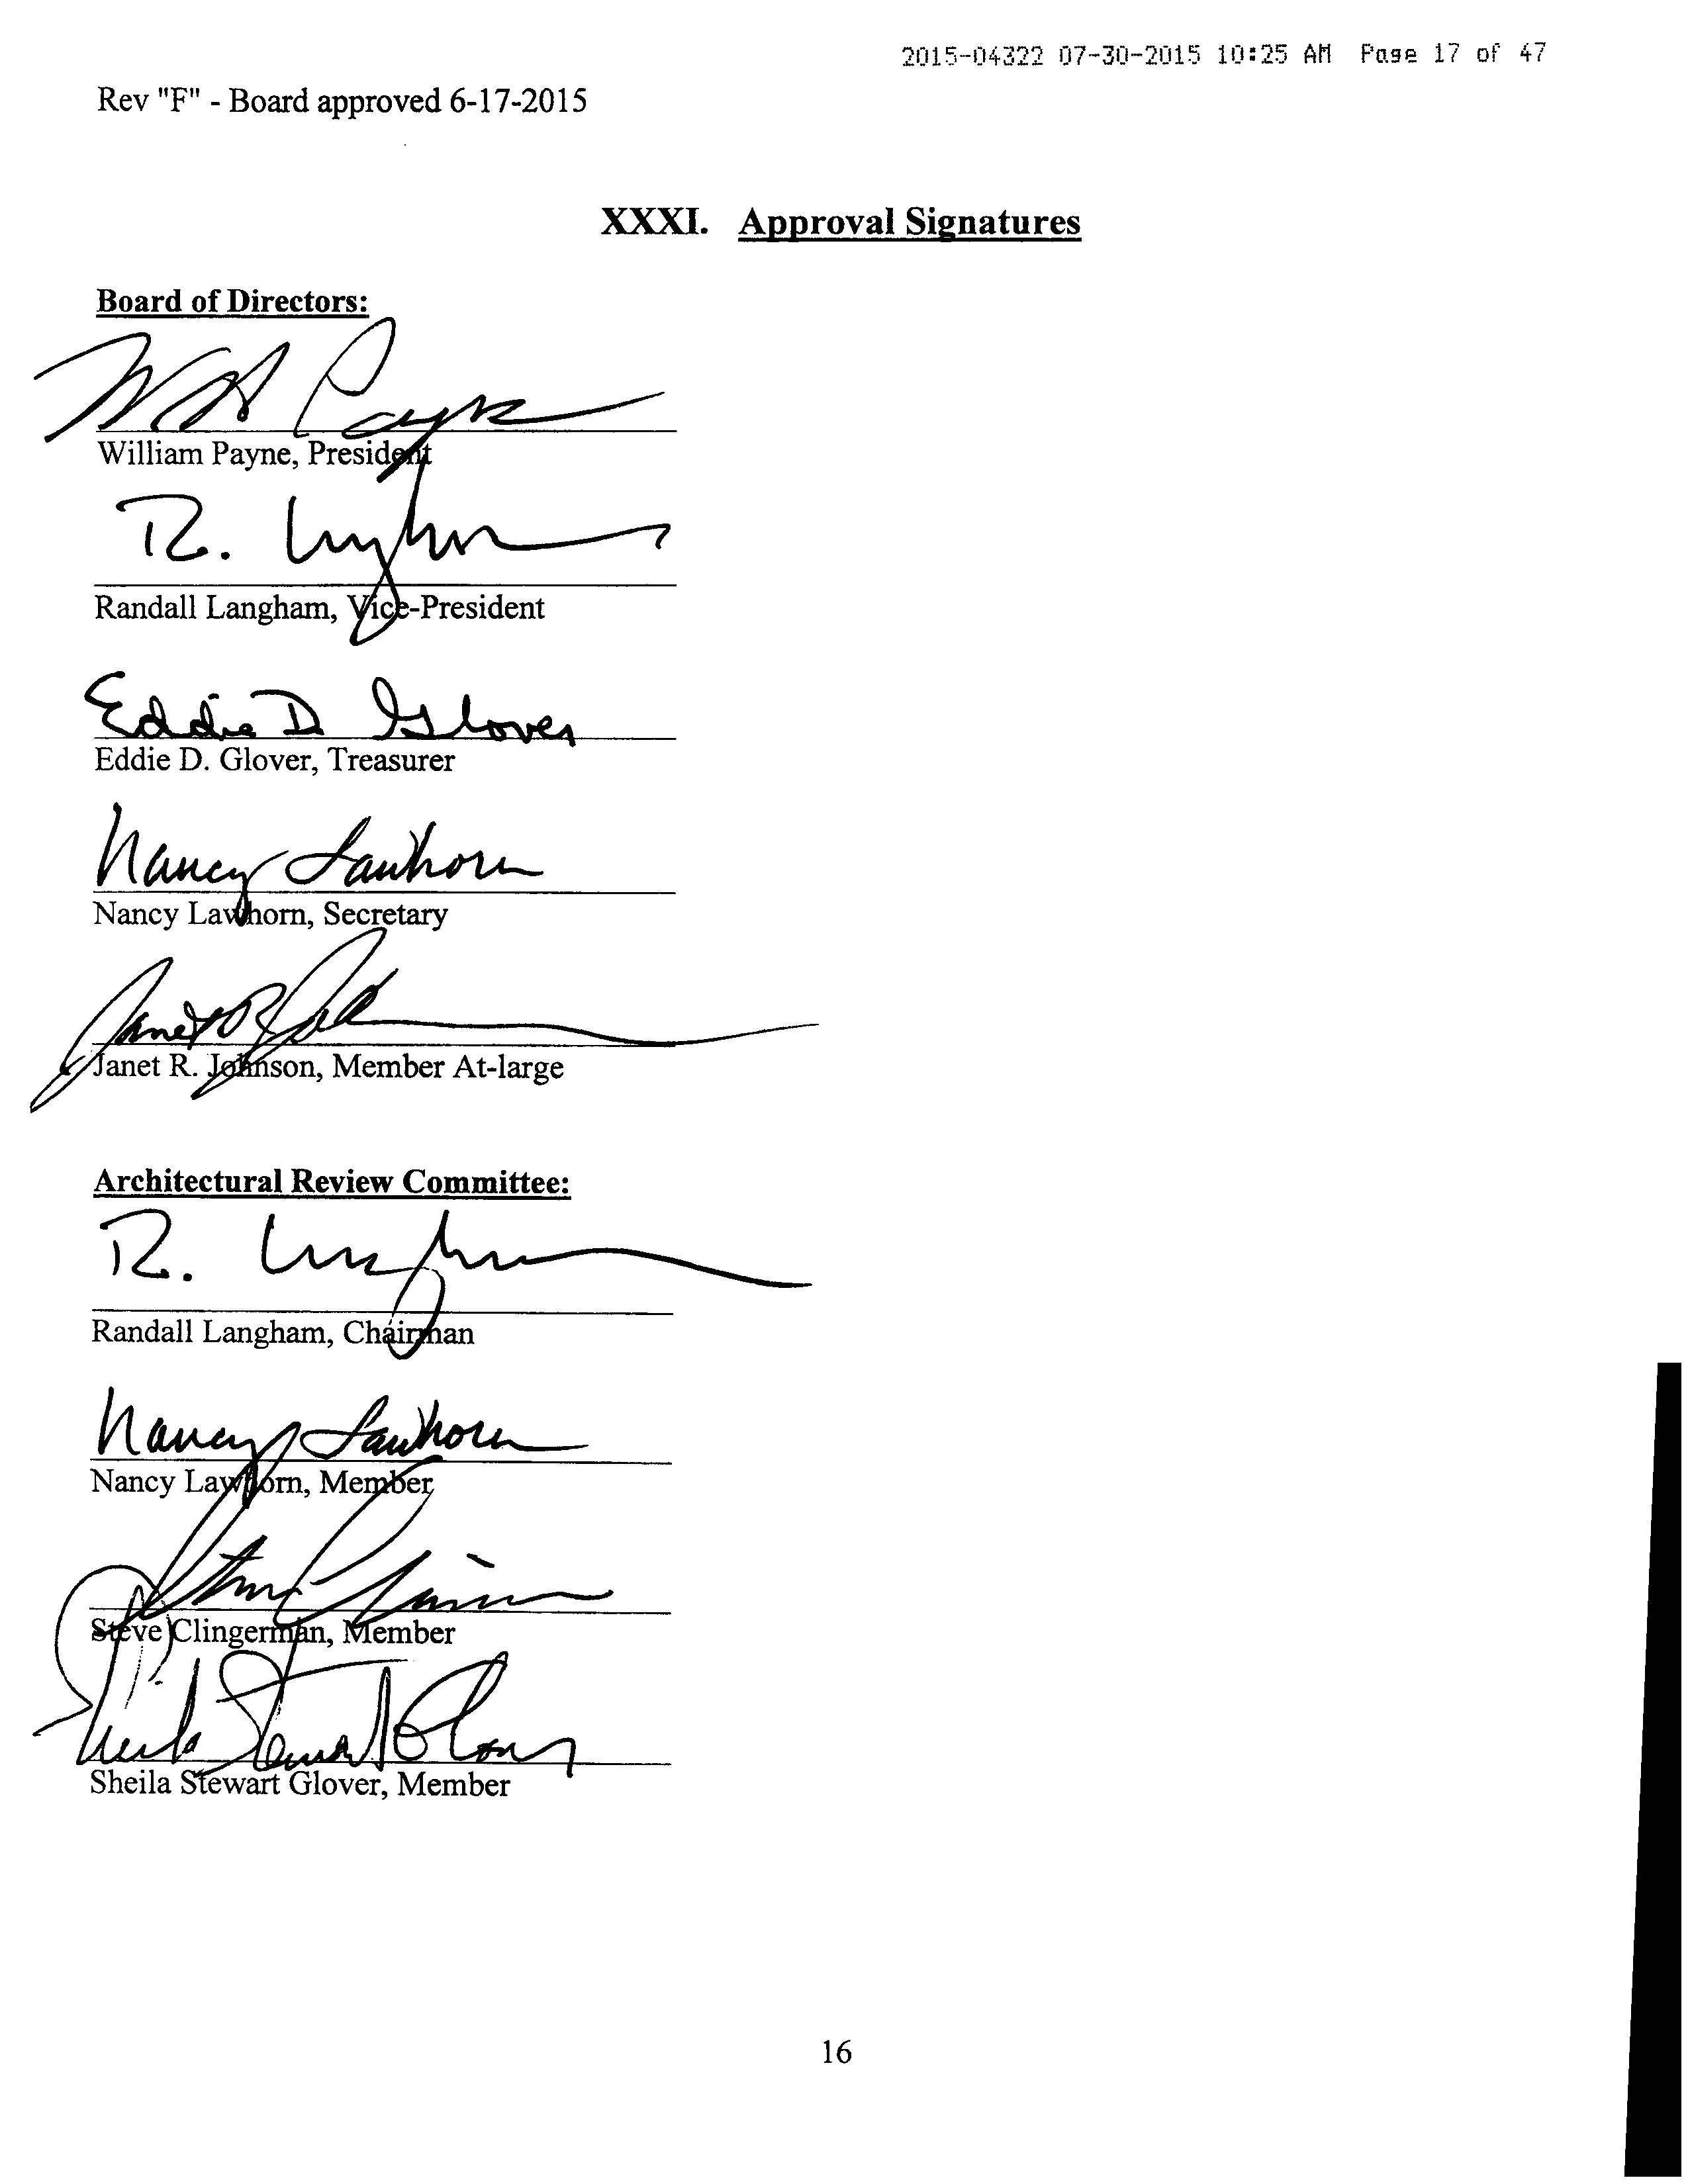 2015-04322 07-30-2015 10:25 AM Page 17 of 47
Rev "F" - Board approved 6-17-2015
XXXI. Approval Signatures
Board of Directors:
W A Payne
William Payne, President
R. Langham
Randall Langham, Vice-President
Eddie D Glover
Eddie D. Glover, Treasurer
Nancy Lawhorn
Nancy Lawhorn, Secretary
Janet R
Janet R. Johnson, Member At-large
Architectural Review Committee:
R. Langham
Randall Langham, Chairman
Nancy Lawhorn
Nancy Lawhorn, Member
Steve Clingerman, Member
Sheila Stewart Glover
Sheila Stewart Glover, Member
16